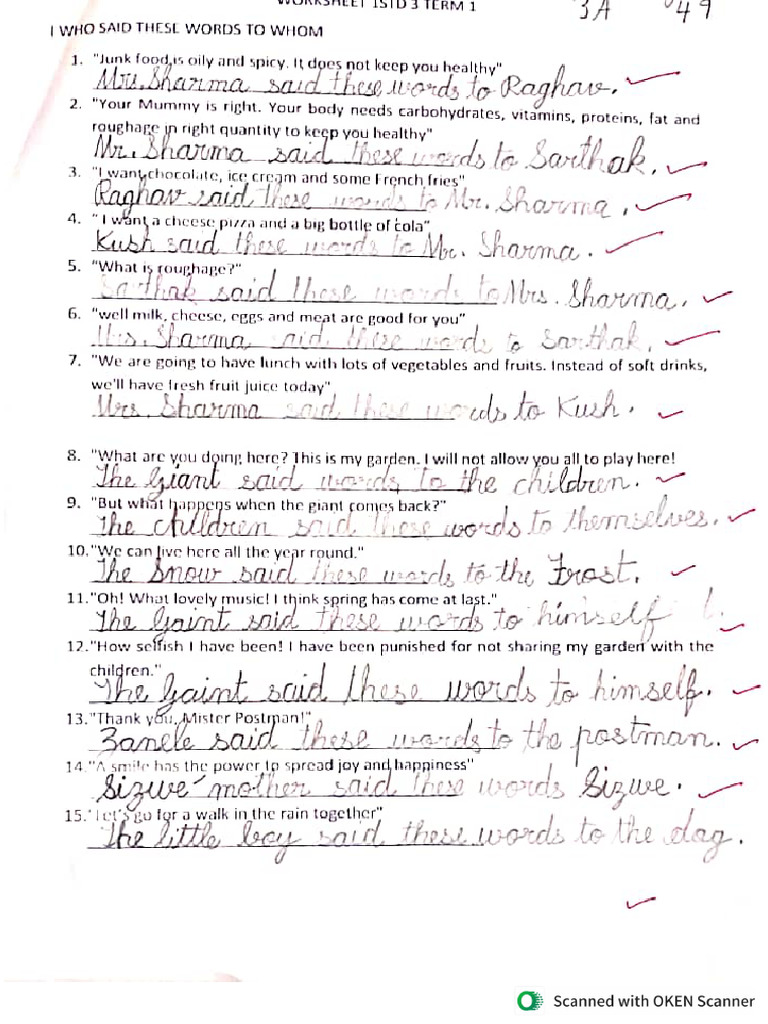 WORKSHEET 1STD 3 TERM 1
3A 49
I WHO SAID THESE WORDS TO WHOM
1. "Junk food is oily and spicy. It does not keep you healthy"
Mrs. Sharma said these words to Raghav.
2. "Your Mummy is right. Your body needs carbohydrates, vitamins, proteins, fat and
roughage in right quantity to keep you healthy"
Mr. Sharma said these words to Sarthak.
3. "I want chocolate, ice cream and some French fries"
Raghav said these words to Mr. Sharma.
4. "I want a cheese pizza and a big bottle of cola"
Kush said these words to Mr. Sharma.
5. "What is roughage?"
Sarthak said these words to Mrs. Sharma.
6. "well milk, cheese, eggs and meat are good for you"
Mrs. Sharma said these words to Sarthak.
7. "We are going to have lunch with lots of vegetables and fruits. Instead of soft drinks,
we'll have fresh fruit juice today"
Mrs. Sharma said these words to Kush.
8. "What are you doing here? This is my garden. I will not allow you all to play here!
The Giant said words to the children.
9. "But what happens when the giant comes back?"
The children said these words to themselves.
10."We can live here all the year round."
The Snow said these words to the Frost.
11."Oh! What lovely music! I think spring has come at last."
The Gaint said these words to himself
12."How selfish I have been! I have been punished for not sharing my garden with the
children."
The Gaint said these words to himself.
13."Thank you, Mister Postman!"
Zanele said these words to the postman.
14."A smile has the power to spread joy and happiness"
Sizwe mother said these words Sizwe.
15."Let's go for a walk in the rain together"
The little boy said these words to the dag.
Scanned with OKEN Scanner